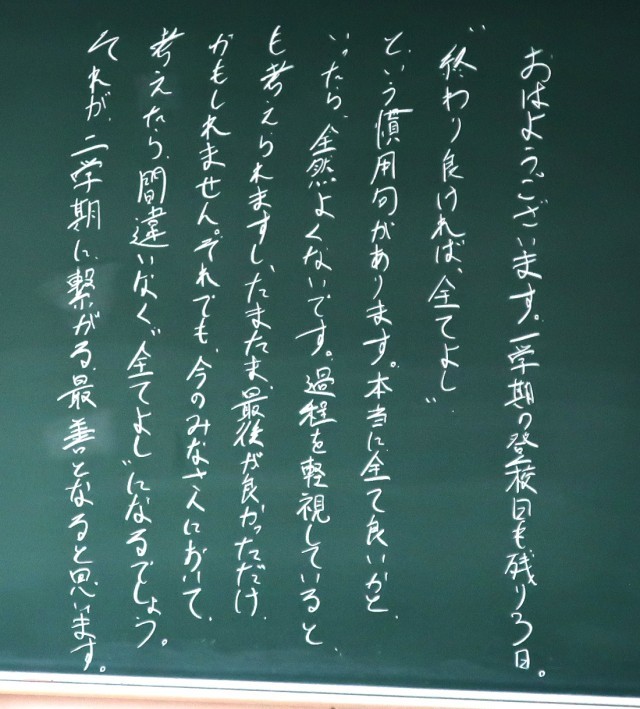 おはようございます。一学期の登校日も残り3日。
“終わり良ければ、全てよし”
という慣用句があります。本当に全て良いかと、
いったら、全然よくないです。過程を軽視していると、
も考えられますし、たまたま、最後が良かっただけ、
かもしれません。それでも、今のみなさんにおいて、
考えたら、間違いなく“全てよし”になるでしょう。
それが、二学期に、繋がる、最善となると思います。